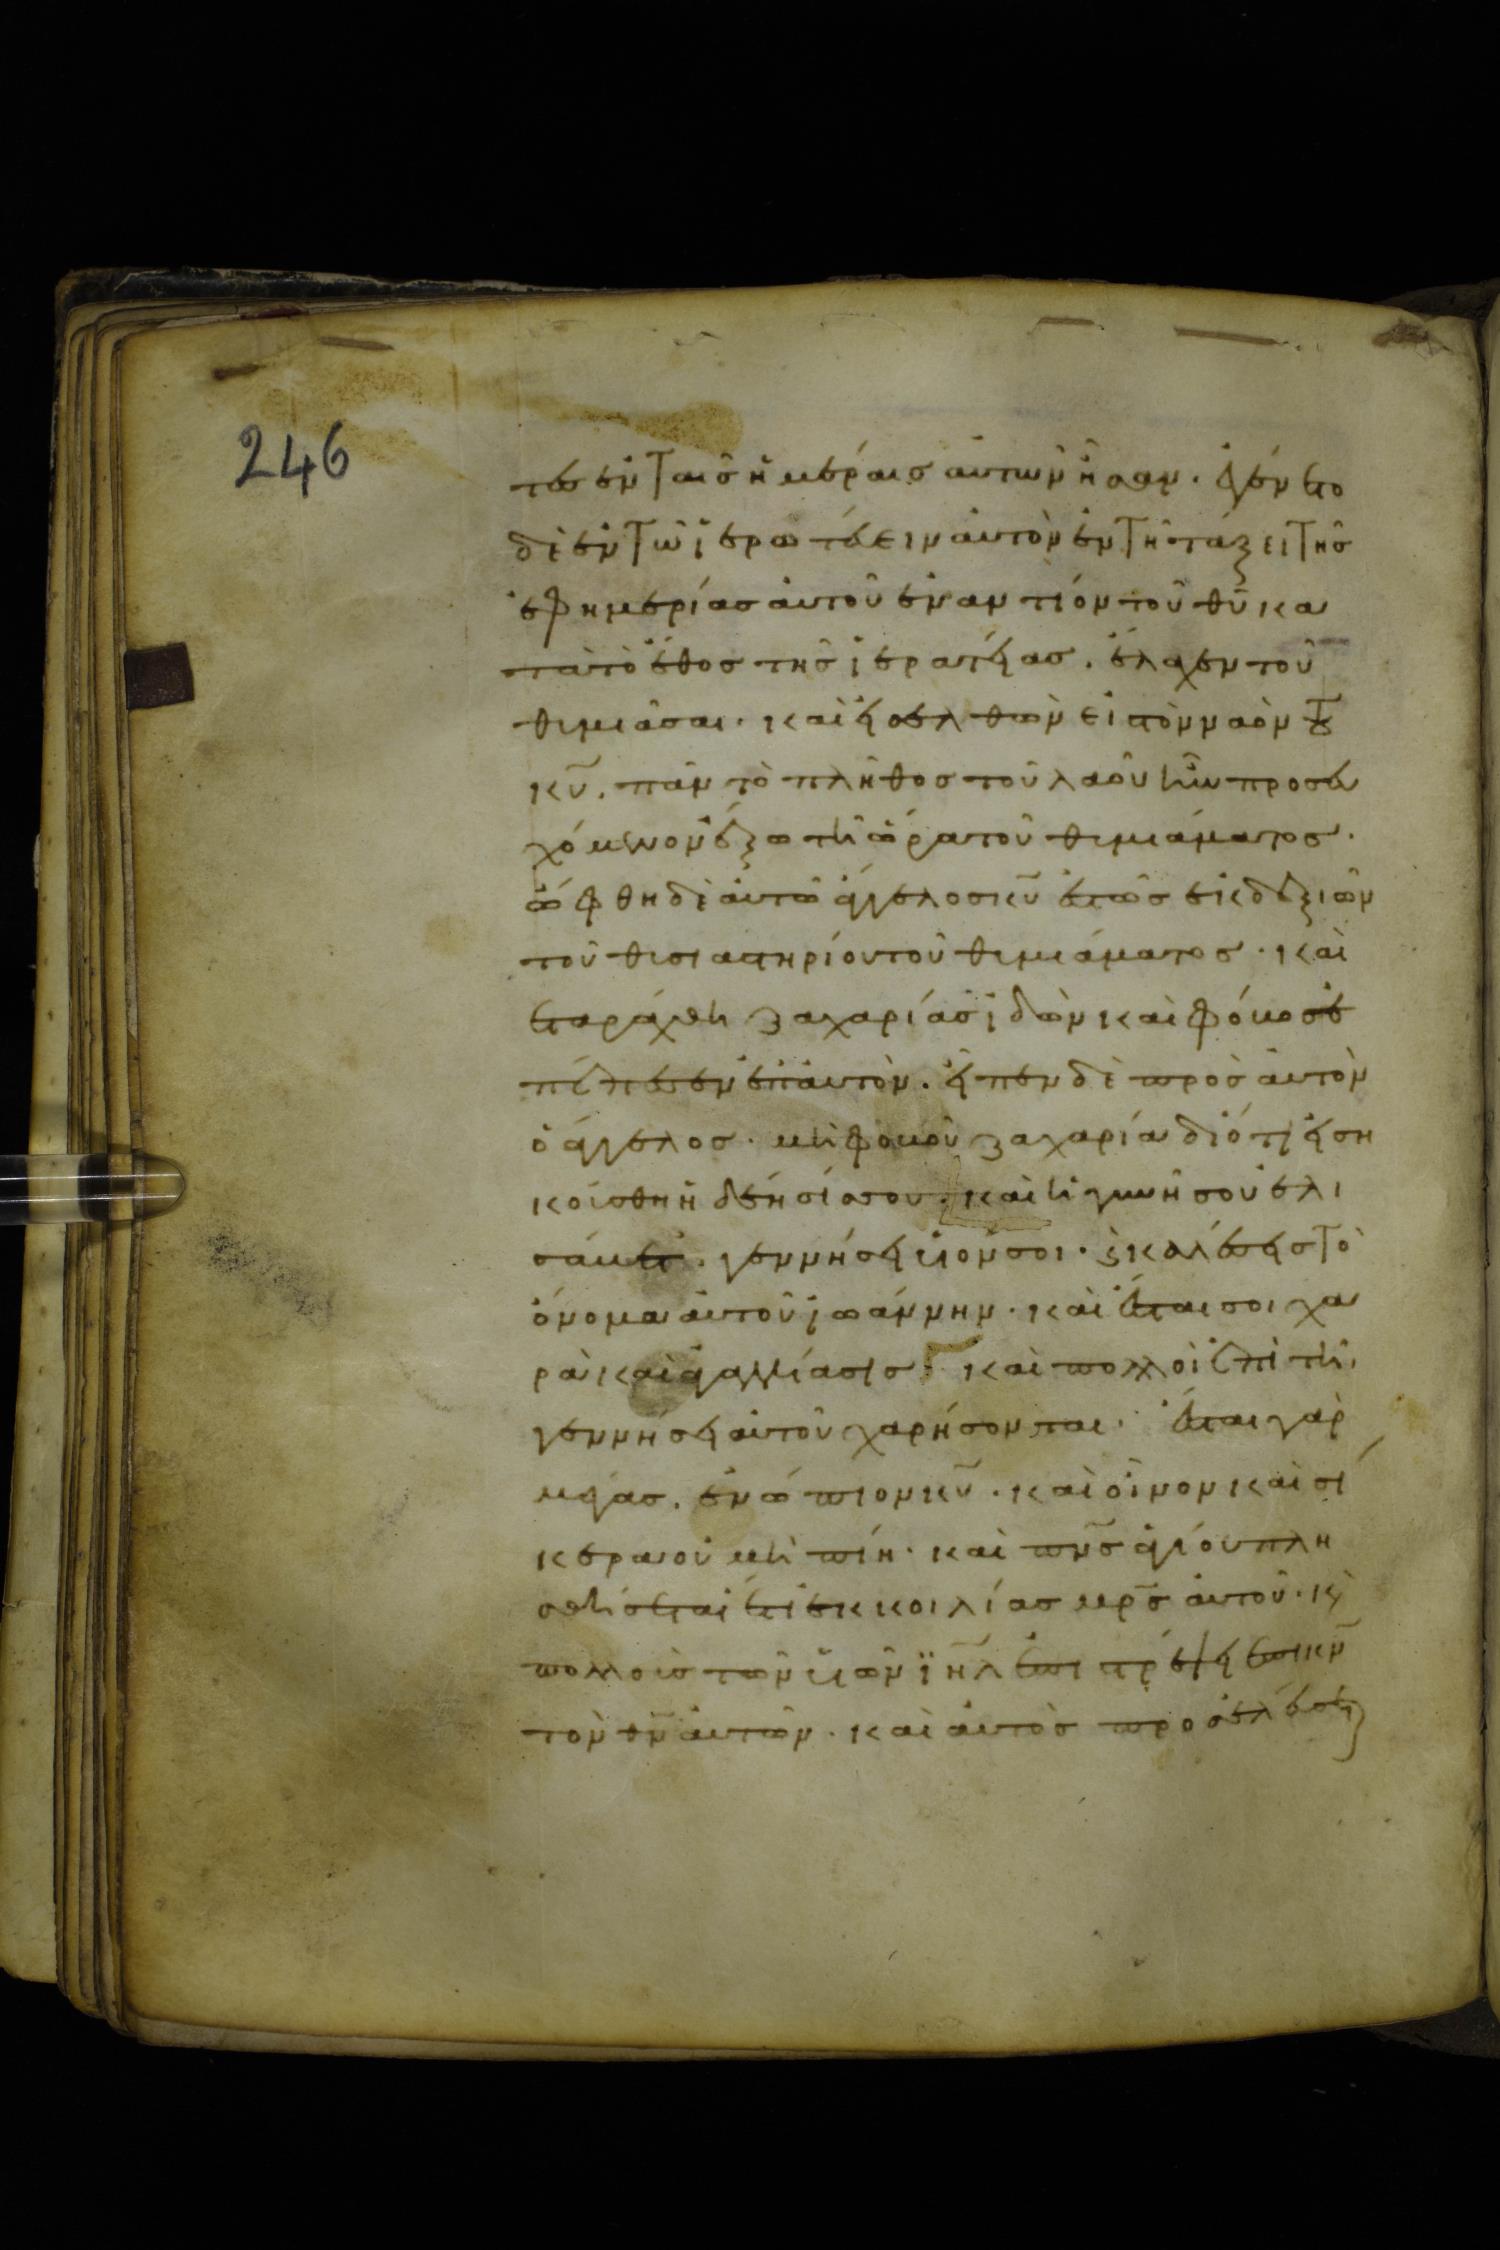 246
τες ἐν ταῖς ἡμέραις αὐτῶν ἦσαν. ἐγένετο
δὲ ἐν τῶ ἱερατεύειν αὐτὸν ἐν τῆ τάξει τῆς
ἐφημερίας αὐτοῦ ἐναντίον τοῦ θυ κα
τὰ τὸ ἔθος τῆς ἱερατείας. ἔλαχεν τοῦ
θυμιᾶσαι. καὶ εἰσελθὼν εἰς τὸν ναὸν τοῦ
κυ. πᾶν τὸ πλῆθος τοῦ λαοῦ ἦν προσευ
χόμενον ἔξω τῆ ὥρα τοῦ θυμιάματος.
ὤφθη δὲ αὐτῶ ἄγγελος κυ ἑστὼς ἐκ δεξιῶν
τοῦ θυσιαστηρίου τοῦ θυμιάματος. καὶ
ἐταράχθη ζαχαρίας ἰδὼν καὶ φόβος ἐ
πέπεσεν ἐπ αὐτὸν. εἶπεν δὲ πρὸς αὐτὸν
ὁ ἄγγελος. μὴ φοβοῦ ζαχαρία διότι εἰση
κούσθη ἡ δέησίς σου. καὶ ἡ γυνή σου ἐλι
σάβετ. γεννήσει υἱόν σοι. καὶ καλέσεις τὸ
ὄνομα αὐτοῦ ἰωάννην. καὶ ἔσται σοι χα
ρὰ καὶ ἀγαλλίασις. καὶ πολλοὶ ἐπὶ τῆ
γεννήσει αὐτοῦ χαρήσονται. ἔσται γὰρ
μέγας. ἐνώπιον κυ. καὶ οἶνον καὶ σί
κερα οὐ μὴ πίη. καὶ πνς ἁγίου πλη
σθήσεται ἔτι ἐκ κοιλίας μρς αὐτοῦ. καὶ
πολλοὺς τῶν υἱῶν ιηλ ἐπιστρέψει ἐπὶ κν
τὸν θν αὐτῶν. καὶ αὐτὸς προελεύσεται